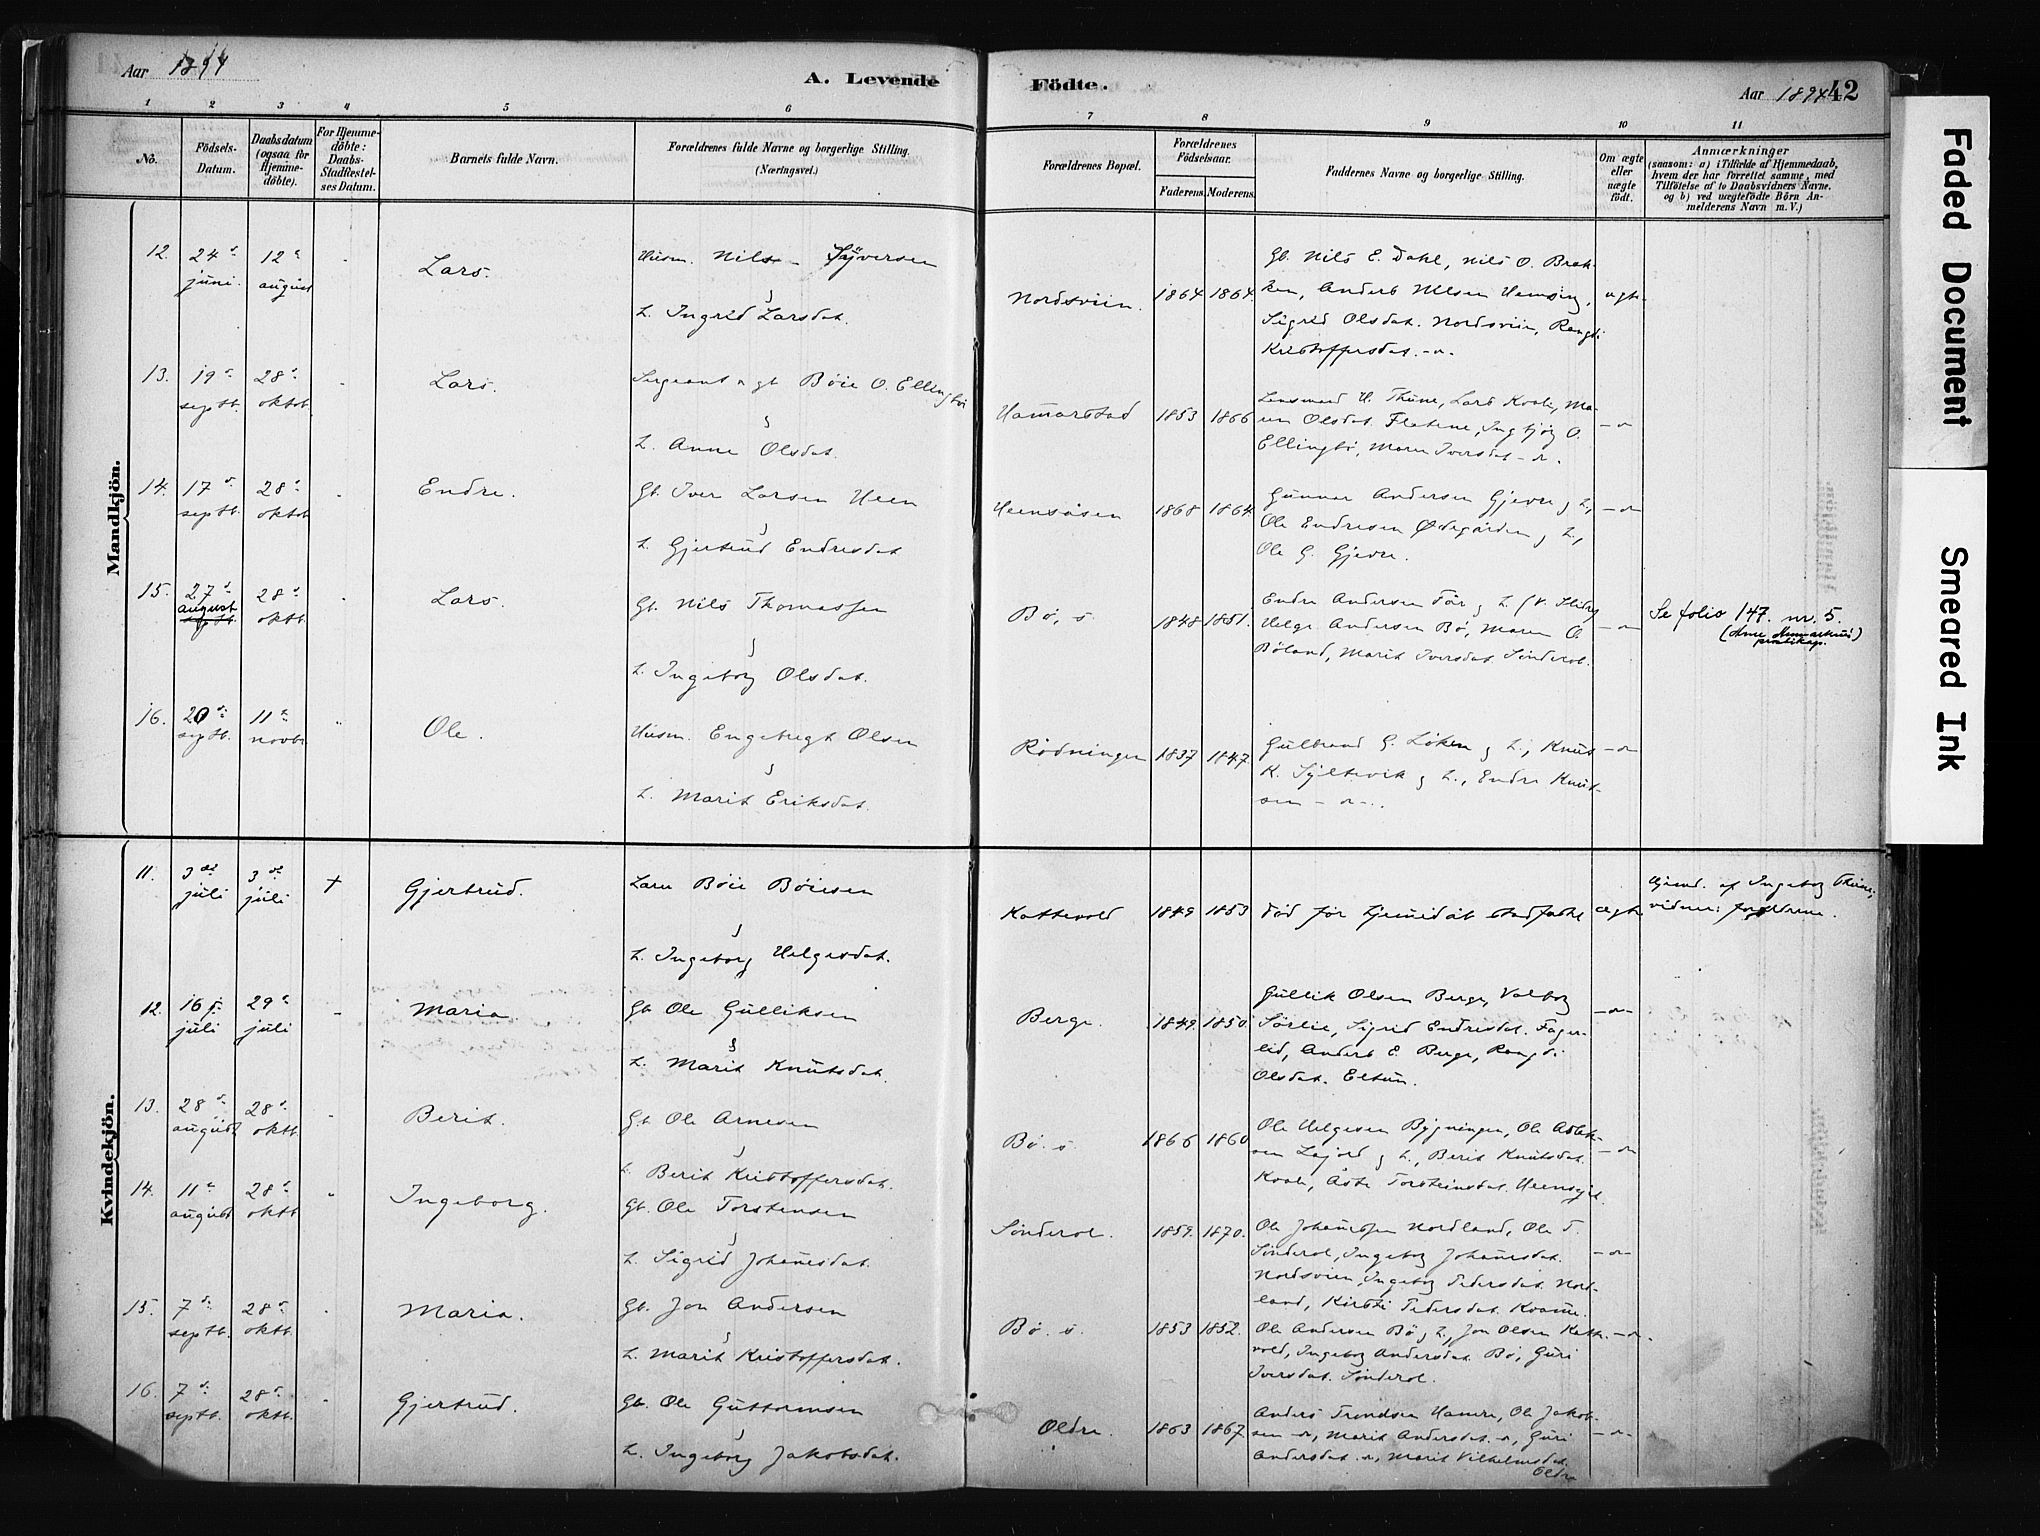 Aar 1894
A. Levende
Födte.
Aar 1894 42
1 2 3 4 5 6 7 8 9 10 11
No.
Födsels-
Datum.
Daabsdatum
(ogsaa for
Hjemme-
döbte).
For Hjemme-
döbte:
Daabs-
Stadfæstel-
ses Datum.
Barnets fulde Navn.
Forældrenes fulde Navne og borgerlige Stilling.
(Næringsvei.)
Forældrenes Bopæl.
Forældrenes
Födselsaar.
Faderens. Moderens.
Faddernes Navne og borgerlige Stilling.
Om ægte
eller
uægte
födt.
Anmærkninger
(saasom: a) i Tilfælde af Hjemmedaab,
hvem der har forrettet samme, med
Tilföielse af to Daabsvidners Navne.
og b) ved uægtefödte Börn An-
melderens Navn m. V.)
Mandkjön.
12. 24 juni. 12 august
Lars.
Husm. Nils Syversen
h. Ingrid Larsdat.
Nordsviin. 1864 1864
Gb. Nils E. Dahl, Nils O. Brak-
ken, Anders Nilsen Hemsing,
Sigrid Olsdat. Nordsviin, Rangdi
Kristoffersdat.
ægte
13. 19 septb. 28 oktob.
Lars.
Sergeant & gb. Böie O. Ellingbö
h. Anne Olsdat.
Hamarstad 1853 1866
Lensmand H. Thune, Lars Kvale, Ma-
ren Olsdat. Flatene, Ingbjörg O.
Ellingbö, Maren Iversdat
14. 17 septb. 28 oktob.
Endre.
Gb. Iver Larsen Heen
h. Gjertrud Endresdat
Heensåsen 1868 1864
Gunnar Andersen Gjevre & h.,
Ole Endresen Ødegården & h.,
Ole G. Gjevre.
15. 27 august septb. 28 oktb.
Lars.
Gb. Nils Thomassen
h. Ingeborg Olsdat.
Bö, s. 1848 1851.
Endre Andersen För & h. (V. Slidre)
Helge Andersen Bö, Maren O.
Böland, Marit Iversdat. Sönderol.
Se folio 147. nr. 5.
16. 20 septb. 11 novbr
Ole.
Husm. Engebregt Olsen
h. Marit Eriksdat.
Rödningen 1837 1847
Gulbrand G. Löken & h., Knut
K. Syltevik & h., Endre Knut-
sen
Kvindekjön.
11. 3 juli 3 juli +
Gjertrud.
Larer Böie Böiesen
h. Ingeborg Helgesdat.
Kattevold 1849 1853
Död för hjemmedåb stadfæstet
ægte
Hjemd. af Ingeborg Thune;
vidner: forældrene.
12. 16 juli 29 juli
Maria
Gb. Ole Gulliksen
h. Marit Knutsdat.
Berge. 1849. 1850.
Gullik Olsen Berge, Valborg
Sörlie, Sigrid Endresdat. Fager-
lid, Anders E. Berge, Rangdi
Olsdat. Eltun.
13. 28 august 28 oktb.
Berit.
Gb. Ole Arnesen
h. Berit Kristoffersdat.
Bö. s. 1866 1860
Ole Helgesen Bygningen, Ole Aslak-
sen Lajord & h., Berit Knutsdat.
Kvale, Åste Torsteinsdat. Heensgd.
14. 11 august 28 oktb.
Ingeborg.
Gb. Ole Torstensen
h. Sigrid Johannesdat.
Sönderol. 1859. 1870.
Ole Johannessen Nordland, Ole T.
Sönderol, Ingeborg Johannesdat.
Nordsviin, Ingeborg Pedersdat. Nord-
land, Kirsti Pedersdat. Kvame.
15. 7 septb. 28 oktb.
Maria.
Gb. Jon Andersen
h. Marit Kristoffersdat.
Bö. s. 1853 1852.
Ole Andersen Bö & h., Jon Olsen Katte-
vold, Ingeborg Andersdat. Bö, Guri
Iversdat. Sönderol.
16. 7 septb. 28 oktb.
Gjertrud.
Gb. Ole Guttormsen
h. Ingeborg Jakobsdat.
Oldre. 1863 1867
Anders Trondsen Hamre, Ole Jakob-
sen, Marit Andersdat., Guri
Andersdat., Marit Vilhelmsdat.
Oldre
Faded Document
Smeared Ink